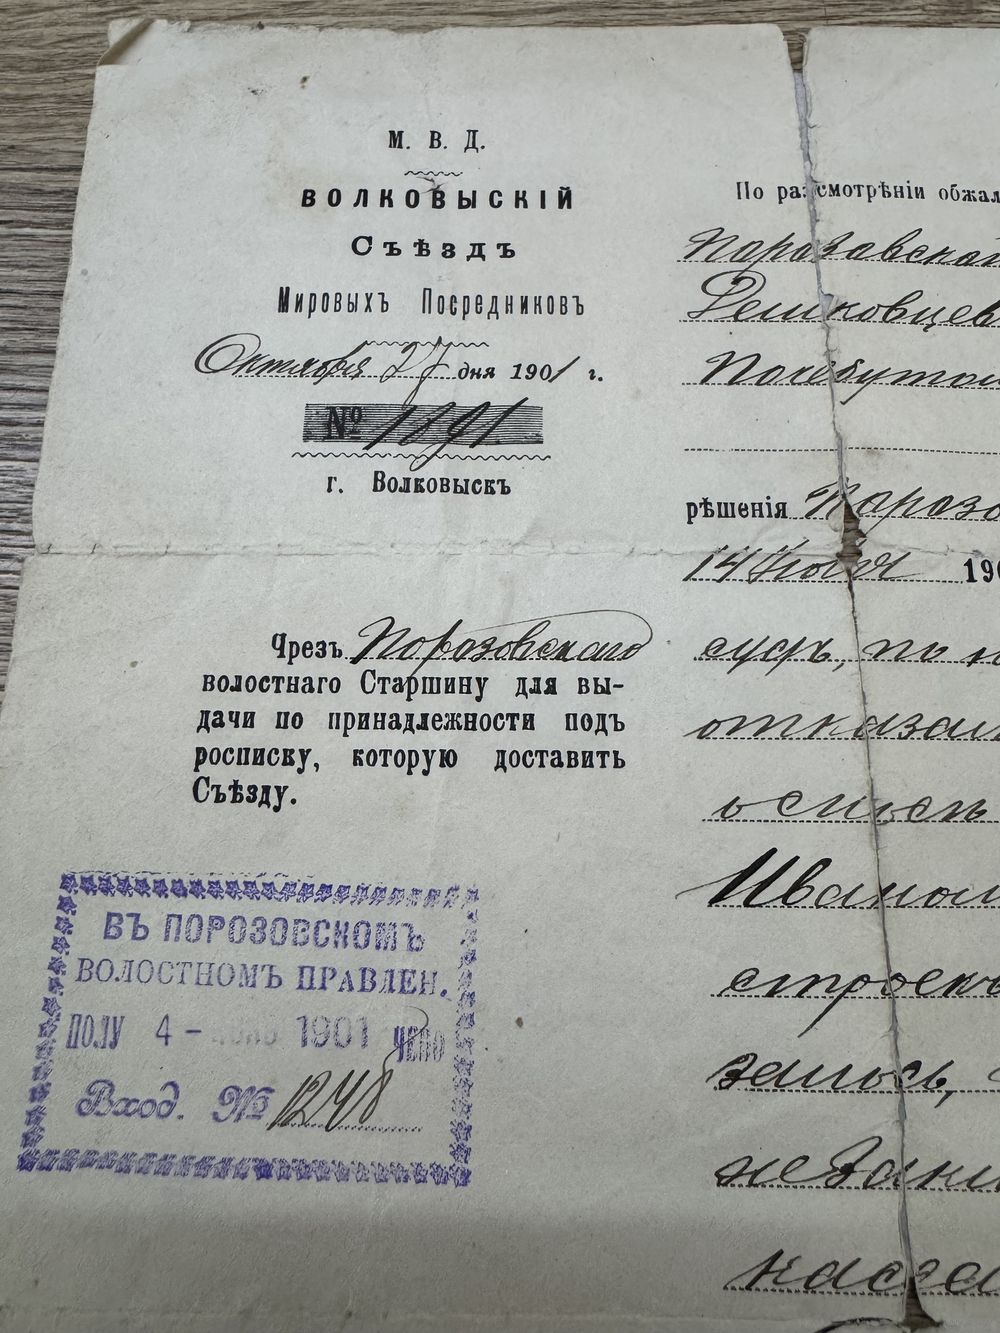 М. В. Д.
ВОЛКОВЫСКІЙ
Съѣздъ
Мировыхъ Посредниковъ
Октября 27 дня 1901 г.
№ 1891
г. Волковыскъ
Чрезъ Порозовскаго
волостнаго Старшину для вы-
дачи по принадлежности подъ
росписку, которую доставить
Съѣзду.
ВЪ ПОРОЗОВСКОМЪ
ВОЛОСТНОМЪ ПРАВЛЕН.
ПОЛУ 4 - 1901 ЧЕНО
Вход. № 1248
По разсмотрѣніи обжал
Порозавскаго
рѣшенія Порозо
14 190
судъ, по
отказал
о сносѣ
Иваном
строекъ
залось,
не